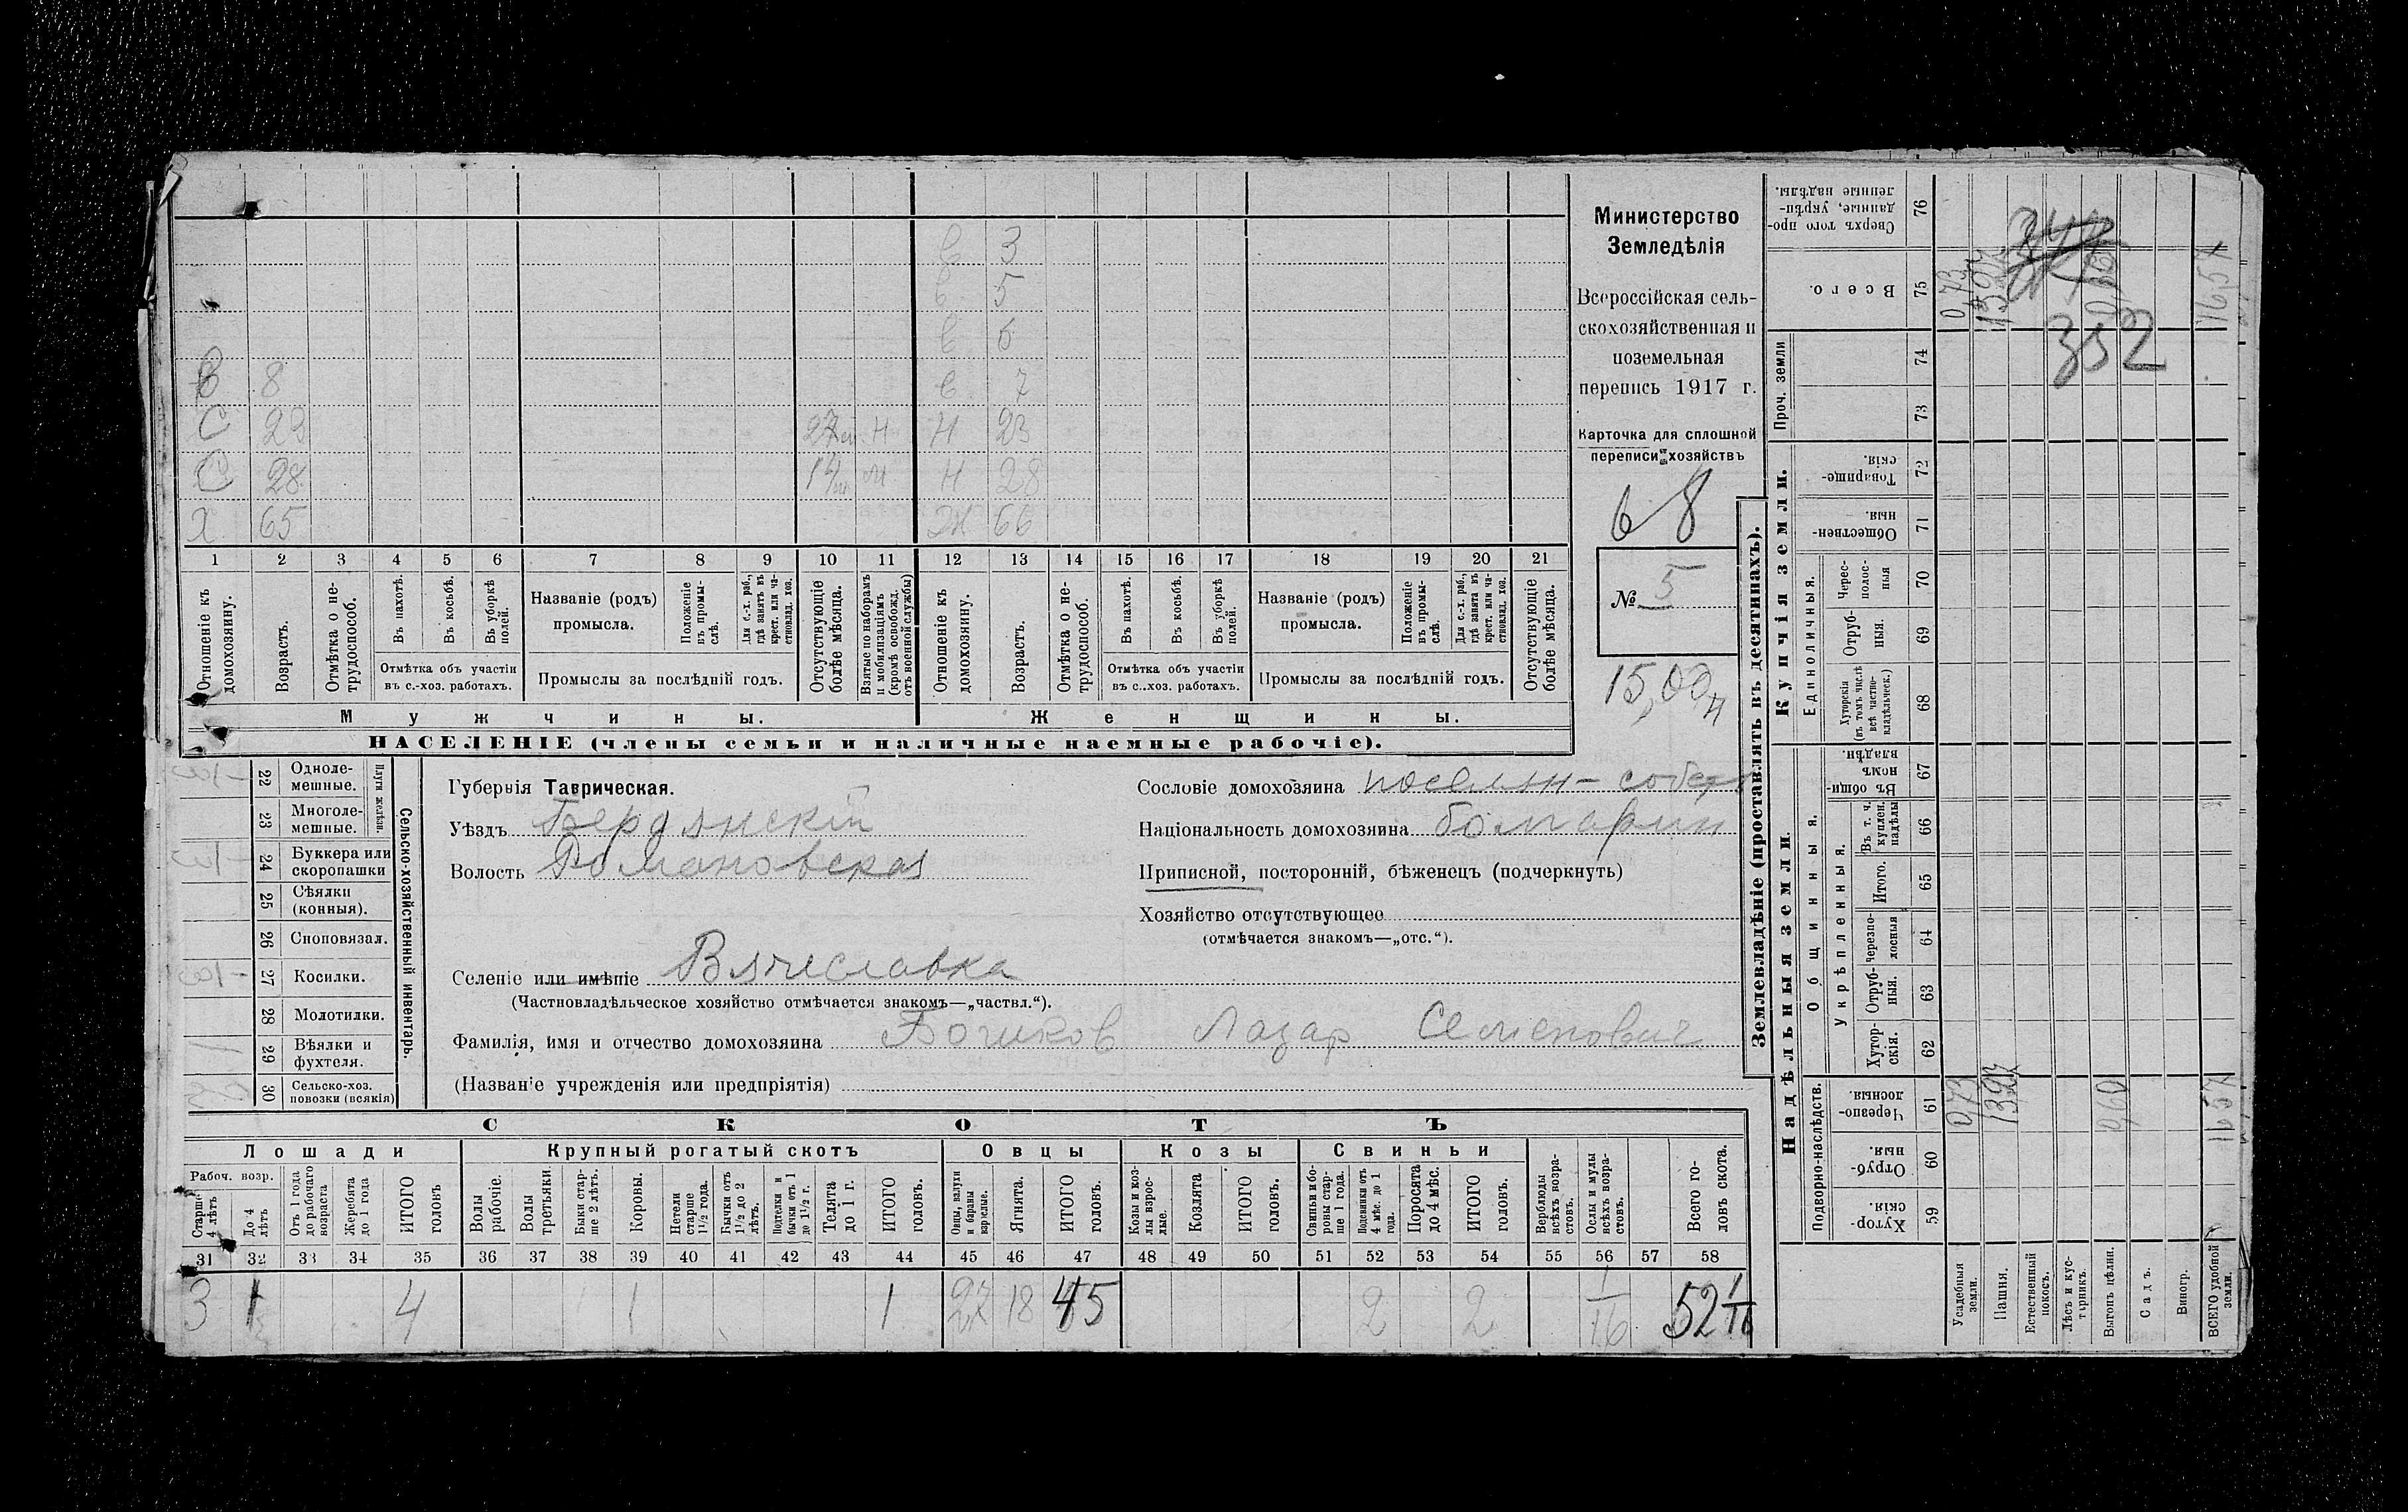 в 3
в 5
в 6
В 8 в 7
С 23 Н Н 23
С 28 Н 28
Х 65 Ж 66
1 2 3 4 5 6 7 8 9 10 11 12 13 14 15 16 17 18 19 20 21
Отношеніе къ домохозяину.
Возрастъ.
Отмѣтка о не-трудоспособ.
Въ пахотѣ.
Въ косьбѣ.
Въ уборкѣ полей.
Отмѣтка объ участіи
въ с.-хоз. работахъ.
Названіе (родъ)
промысла.
Положеніе въ промы-слѣ.
Для с.-х. раб., гдѣ занятъ въ крест. или ча-стновлад. хоз.
Промыслы за послѣдній годъ.
Отсутствующіе болѣе мѣсяца.
Взятые по наборамъ и мобилизаціямъ (кромѣ освобожд. отъ военной службы)
Отношеніе къ домохозяину.
Возрастъ.
Отмѣтка о не-трудоспособ.
Въ пахотѣ.
Въ косьбѣ.
Въ уборкѣ полей.
Отмѣтка объ участіи
въ с.-хоз. работахъ.
Названіе (родъ)
промысла.
Положеніе въ промы-слѣ.
Для с.-х. раб., гдѣ занята въ крест. или ча-стновлад. хоз.
Промыслы за послѣдній годъ.
Отсутствующіе болѣе мѣсяца.
Мужчины. Женщины.
НАСЕЛЕНІЕ (члены семьи и наличные наемные рабочіе).
Министерство
Земледѣлія
Всероссійская сель-
скохозяйственная и
поземельная
перепись 1917 г.
Карточка для сплошной
переписи хозяйствъ
68
№ 5
15,00
22 Одноле-мешные.
23 Многоле-мешные.
Плуги желѣзн.
24 Буккера или скоропашки
25 Сѣялки (конныя).
26 Сноповязал.
27 Косилки.
28 Молотилки.
29 Вѣялки и фухтеля.
30 Сельско-хоз. повозки (всякія)
Сельско-хозяйственный инвентарь.
Губернія Таврическая.
Уѣздъ Бердянскій
Волость Романовская
Селеніе или имѣніе Вячеславка
(Частновладѣльческое хозяйство отмѣчается знакомъ—„частвл.“).
Фамилія, имя и отчество домохозяина Бочков Лазар Семенович
(Названіе учрежденія или предпріятія)
Сословіе домохозяина поселян-собст
Національность домохозяина болгарин
Приписной, посторонній, бѣженецъ (подчеркнуть)
Хозяйство отсутствующее
(отмѣчается знакомъ—„отс.“).
СКОТЪ
Лошади Крупный рогатый скотъ Овцы Козы Свиньи
Рабоч. возр.
Старше 4 лѣтъ
До 4 лѣтъ
Отъ 1 года до рабочаго возраста
Жеребята до 1 года
ИТОГО головъ
Волы рабочіе.
Волы третьяки
Быки стар-ше 2 лѣтъ.
Коровы.
Нетели старше 1½ года.
Бычки отъ 1½ до 2 лѣтъ.
Подтелки и бычки отъ 1 до 1½ г.
Телята до 1 г.
ИТОГО головъ.
Овцы, валухи и бараны взрослые.
Ягнята.
ИТОГО головъ.
Козы и коз-лы взрос-лые.
Козлята
ИТОГО головъ.
Свиньи и бо-ровы стар-ше 1 года.
Подсвинки отъ 4 мѣс. до 1 года.
Поросята до 4 мѣс.
ИТОГО головъ.
Верблюды всѣхъ возра-стовъ.
Ослы и мулы всѣхъ возра-стовъ.
Всего го-ловъ скота.
31 32 33 34 35 36 37 38 39 40 41 42 43 44 45 46 47 48 49 50 51 52 53 54 55 56 57 58
3 1 4 1 1 27 18 45 2 2 1/16 52 1/16
Землевладѣніе (проставлять въ десятинахъ).
Купчія земли.
Надѣльныя земли
Сверхъ того про-данные, укрѣп-ленные надѣлы. 76
Всего. 75
Проч. земли 74 73
Товарище-скія. 72
Обществен-ныя. 71
Единоличныя.
Черес-полос-ныя 70
Отруб-ныя. 69
Хуторскія (въ томъ числѣ всѣ частно-владѣльческ.) 68
Общинныя.
Въ общин-номъ владѣн. 67
Укрѣпленныя.
Въ т. ч. куплен. надѣлы 66
Итого. 65
Черезпо-лосныя 64
Отруб-ныя. 63
Хутор-скія. 62
Подворно-наслѣдств.
Черезпо-лосныя. 61
Отруб-ныя. 60
Хутор-скія. 59
Усадебныя земли.
Пашня.
Естественный покосъ.
Лѣсъ и кус-тарникъ.
Выгонъ цѣлин.
Садъ.
Виногр.
ВСЕГО удобной земли.
0,73
352
0,73